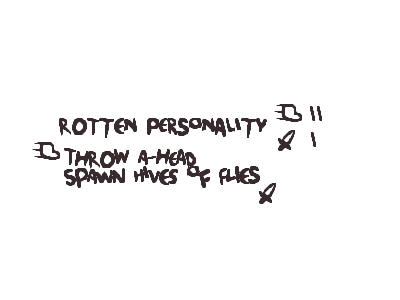 ROTTEN PERSONALITY II
I
THROW A-HEAD
SPAWN HIVES OF FLIES